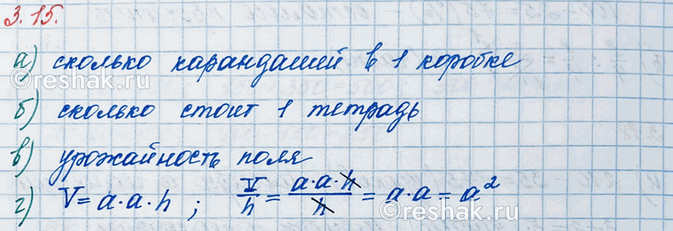 3.15.
а) сколько карандашей в 1 коробке
б) сколько стоит 1 тетрадь
в) урожайность поля
г) V = a·a·h ; V/h = a·a·h/h = a·a = a²
©reshak.ru
©reshak.ru